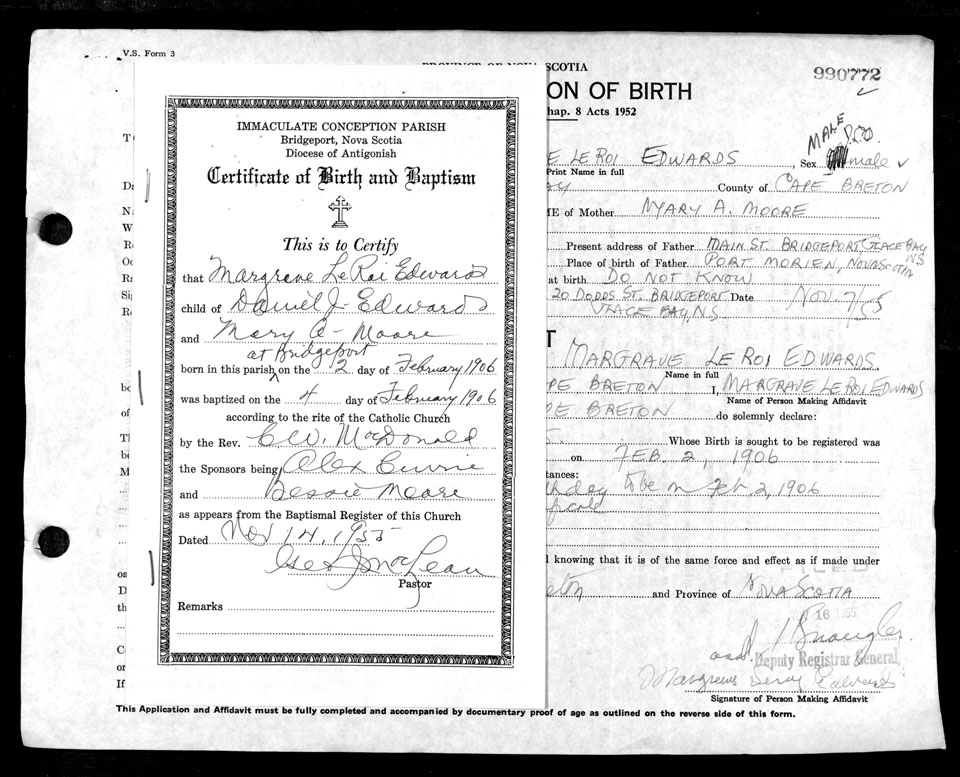 V.S. Form 3
PROVINCE OF NOVA SCOTIA
990772
ON OF BIRTH
hap. 8 Acts 1952
IMMACULATE CONCEPTION PARISH
Bridgeport, Nova Scotia
Diocese of Antigonish
Certificate of Birth and Baptism
This is to Certify
that Margrave LeRoi Edwards
child of Daniel J. Edwards
and Mary A - Moore
at Bridgeport
born in this parish on the 2 day of February 1906
was baptized on the 4 day of February 1906
according to the rite of the Catholic Church
by the Rev. C.W. MacDonald
the Sponsors being Alex Currie
and Bessie Moore
as appears from the Baptismal Register of this Church
Dated Nov 14, 1955
Pastor
Remarks
MALE
E LE ROI EDWARDS, Sex male
Print Name in full
AY County of CAPE BRETON
ME of Mother MARY A. MOORE
Present address of Father MAIN ST. BRIDGEPORT GLACE BAY
N.S
Place of birth of Father PORT MORIEN, NOVA SCOTIA
at birth DO NOT KNOW
20 DODDS ST. BRIDGEPORT Date NOV. 7/55
GLACE BAY, N.S.
T
MARGRAVE LE ROI EDWARDS
Name in full
PE BRETON I, MARGRAVE LEROI EDWARDS
Name of Person Making Affidavit
PE BRETON do solemnly declare:
S. Whose Birth is sought to be registered was
on FEB. 2, 1906
tances:
to be on Feb. 2, 1906
knowing that it is of the same force and effect as if made under
eton and Province of NOVA SCOTIA
16
Deputy Registrar General
Signature of Person Making Affidavit
This Application and Affidavit must be fully completed and accompanied by documentary proof of age as outlined on the reverse side of this form.